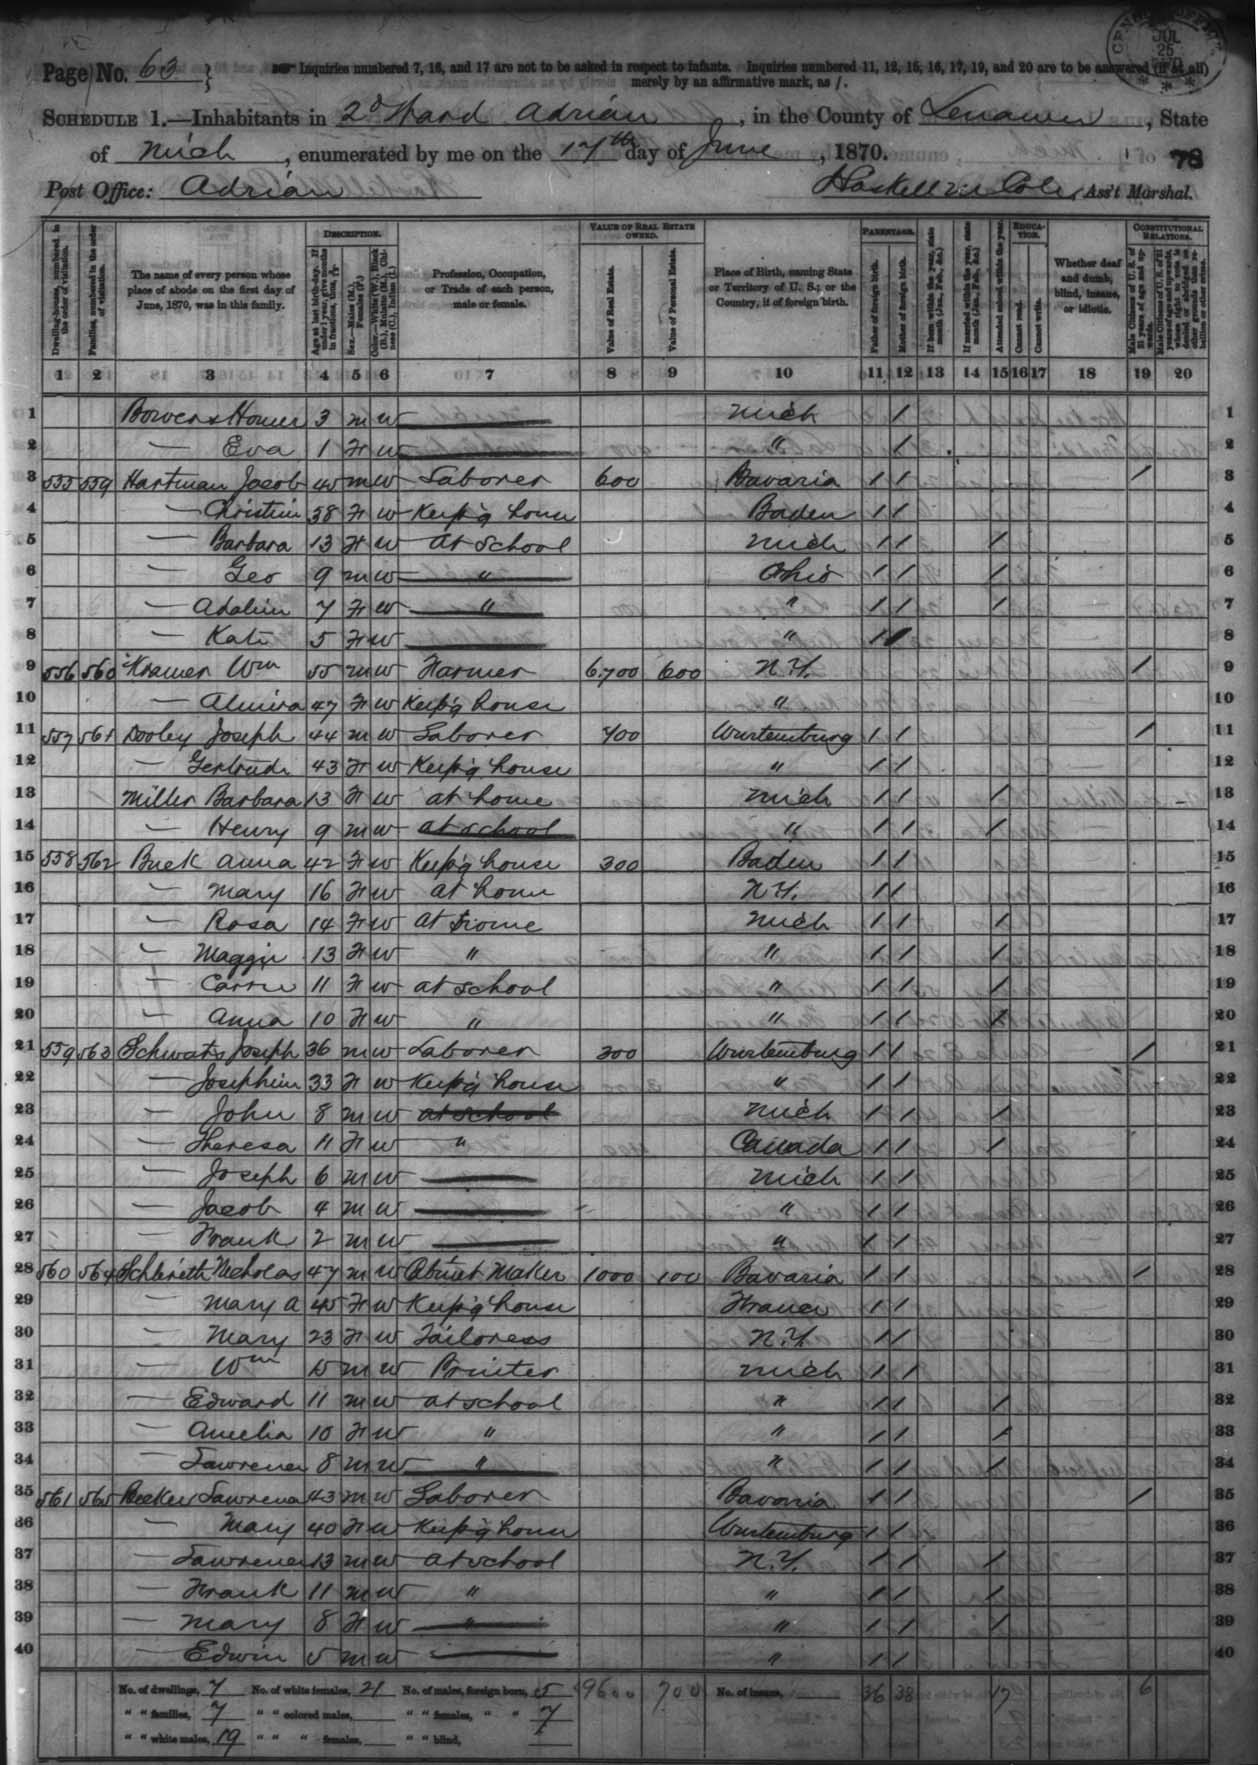 CENSUS OFFICE JUL 25
Page No. 63 } Inquiries numbered 7, 16, and 17 are not to be asked in respect to infants. Inquiries numbered 11, 12, 15, 16, 17, 19, and 20 are to be answered (if at all) merely by an affirmative mark, as /.
SCHEDULE 1.—Inhabitants in 2d Ward Adrian, in the County of Lenawee, State
of Mich, enumerated by me on the 17th day of June, 1870. 78
Post Office: Adrian Haskell M Cole, Ass't Marshal.
Dwelling-house, numbered in the order of visitation. Families, numbered in the order of visitation. The name of every person whose place of abode on the first day of June, 1870, was in this family. DESCRIPTION. Age at last birth-day. Sex.—Males (M.), Females (F.) Profession, Occupation, or Trade of each person, male or female. VALUE OF REAL ESTATE OWNED. Value of Real Estate. Value of Personal Estate. Place of Birth, naming State or Territory of U. S.; or the Country, if of foreign birth. PARENTAGE. Father of foreign birth. Mother of foreign birth. If born within the year, state month (Jan., Feb., &c.) If married within the year, state month (Jan., Feb., &c.) Attended school within the year. EDUCATION. Cannot read. Cannot write. Whether deaf and dumb, blind, insane, or idiotic. CONSTITUTIONAL RELATIONS.
1 2 3 4 5 6 7 8 9 10 11 12 13 14 15 16 17 18 19 20
1 Bowers Homer 3 M W Mich / 1
2 — Eva 1 F W " / 2
3 555 559 Hartman Jacob 45 M W Laborer 600 Bavaria / / / 3
4 — Christine 38 F W Keep'g house Baden / / 4
5 — Barbara 13 F W At School Mich / / / 5
6 — Geo 9 M W " Ohio / / / 6
7 — Adaline 7 F W " " / / / 7
8 — Kate 5 F W " / / 8
9 556 560 Kramer Wm 55 M W Farmer 6.700 600 N.Y. / 9
10 — Almira 47 F W Keep'g house " 10
11 557 561 Dooley Joseph 44 M W Laborer 700 Wurtemburg / / / 11
12 — Gertrude 43 F W Keep'g house " / / 12
13 Miller Barbara 13 F W at home Mich / / / 13
14 — Henry 9 M W at school " / / / 14
15 558 562 Buck Anna 42 F W Keep'g house 300 Baden / / 15
16 — Mary 16 F W at home N.Y. / / 16
17 — Rosa 14 F W At home Mich / / / 17
18 — Maggie 13 F W " " / / / 18
19 — Carrie 11 F W at school " / / / 19
20 — Anna 10 F W " " / / / 20
21 559 563 Schwarts Joseph 36 M W Laborer 300 Wurtemburg / / / 21
22 — Josephine 33 F W Keep'g house " / / 22
23 — John 8 M W at school Mich / / / 23
24 — Theresa 11 F W " Canada / / / 24
25 — Joseph 6 M W Mich / / 25
26 — Jacob 4 M W " / / 26
27 — Frank 2 M W " / / 27
28 560 564 Schlereth Nicholas 47 M W Cabinet Maker 1000 100 Bavaria / / / 28
29 — Mary A 45 F W Keep'g house France / / 29
30 — Mary 23 F W Tailoress N.Y. / / 30
31 — Wm 15 M W Printer Mich / / 31
32 — Edward 11 M W at school " / / / 32
33 — Amelia 10 F W " " / / / 33
34 — Lawrence 8 M W " " / / / 34
35 561 565 Becker Lawrence 43 M W Laborer Bavaria / / / 35
36 — Mary 40 F W Keep'g house Wurtemburg / / 36
37 — Lawrence 13 M W at school N.Y. / / / 37
38 — Frank 11 M W " " / / / 38
39 — Mary 8 F W " " / / / 39
40 — Edwin 5 M W " / / 40
No. of dwellings, 7 No. of white females, 21 No. of males, foreign born, 5 9600 700 No. of insane, 36 38 17 6
" " families, 7 " " colored males, " " females, " " 7
" " white males, 19 " " " females, " " blind,